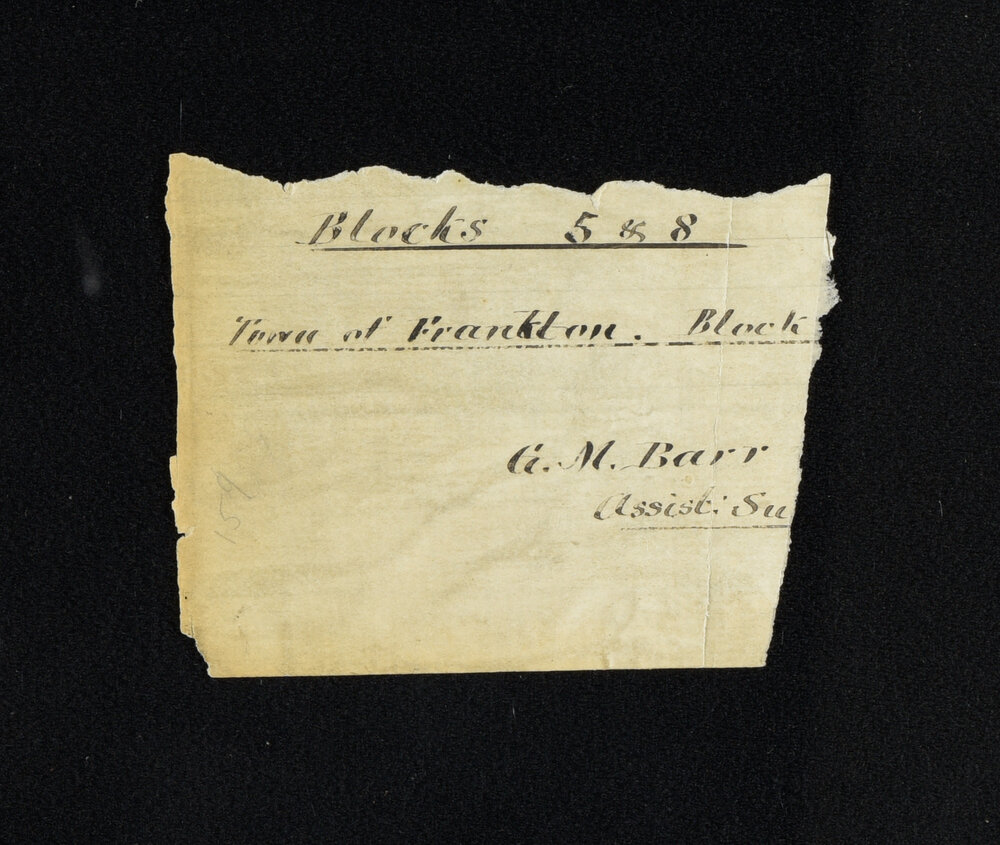 Blocks 5 & 8
Town of Frankton. Block
G. M. Barr
Assist: Su
159